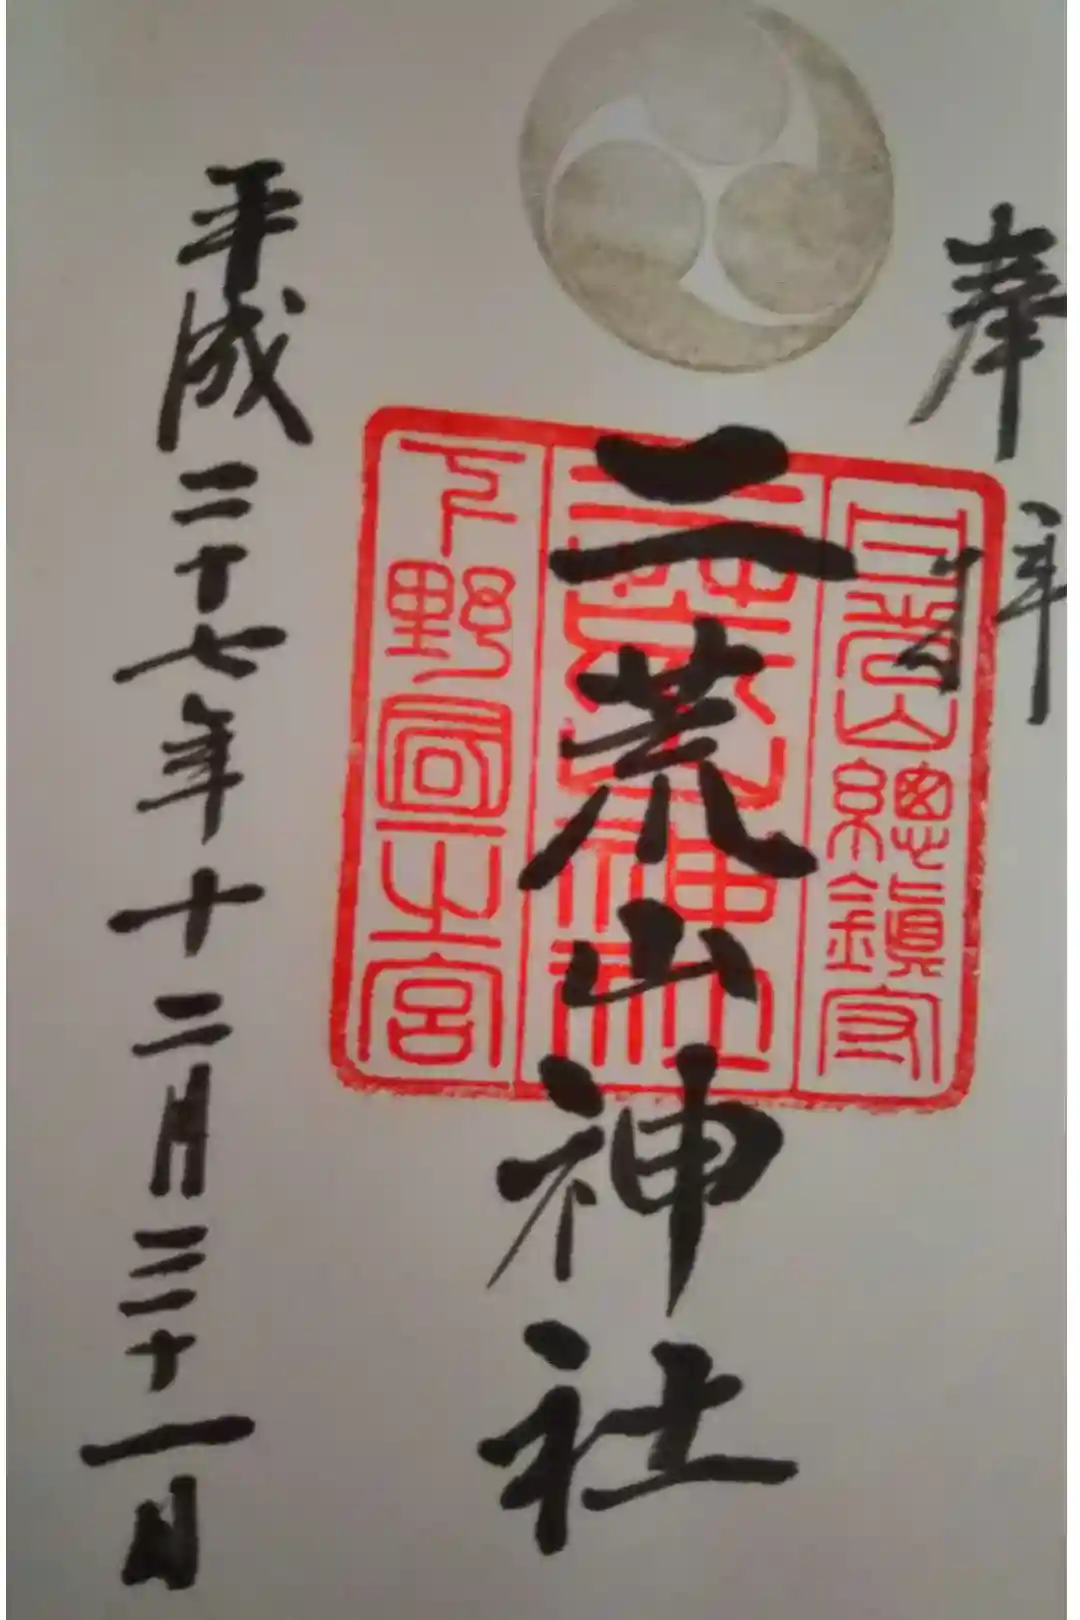 奉拝
二荒山神社
平成二十七年十二月三十一日
日光山總鎭守
二荒山神社
下野國一之宮